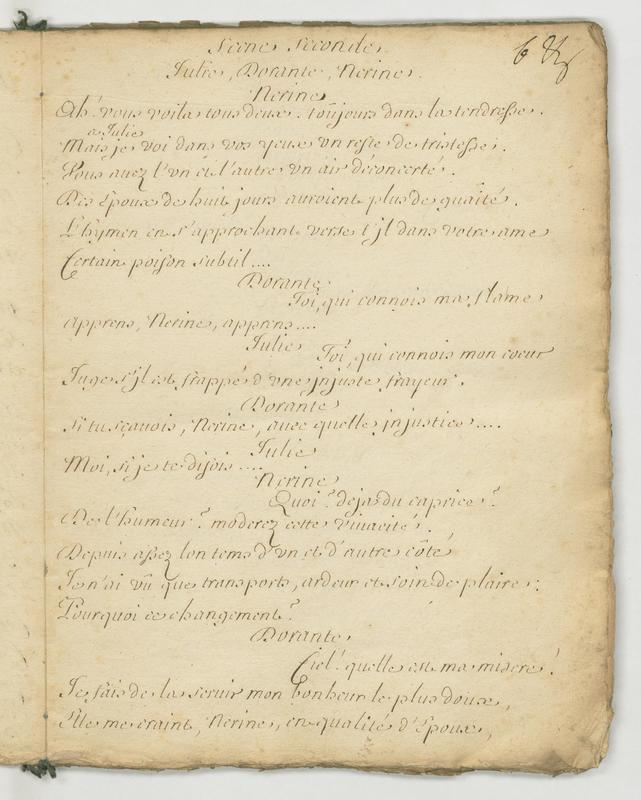 Scene Seconde
Julie, Dorante, Nerine.
Nerine
Ah! vous voila tous deux. toûjours dans la tendresse.
a Julie
Mais je voi dans vos yeux un reste de tristesse.
Vous avez l'un et l'autre un air déconcerté.
Des Epoux de huit jours auroient plus de gaité.
L'hymen en s'approchant verse t'jl dans votre ame
Certain poison subtil....
Dorante
Toi, qui connois ma flame
apprens, Nerine, apprens....
Julie
Toi, qui connois mon coeur
Juge s'jl est frappé d'une jnjuste frayeur.
Dorante
Si tu sçavois, Nerine, avec quelle jnjustice....
Julie
Moi, si je te disois....
Nerine
Quoi? deja du caprice?
De l'humeur? moderez cette vivacité.
Depuis assez lon tems d'un et d'autre côté
Je n'ai vû que transports, ardeur et soin de plaire:
Pourquoi ce changement?
Dorante
Ciel! quelle est ma misere!
Je fais de la servir mon bonheur le plus doux,
Elle me craint, Nerine, en qualité d'Epoux,